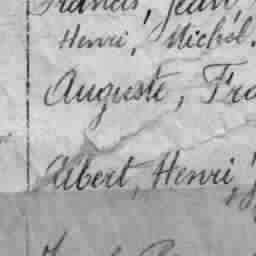 Francis, Jean,
Henri, Michel.
Auguste, Fra
Albert, Henri